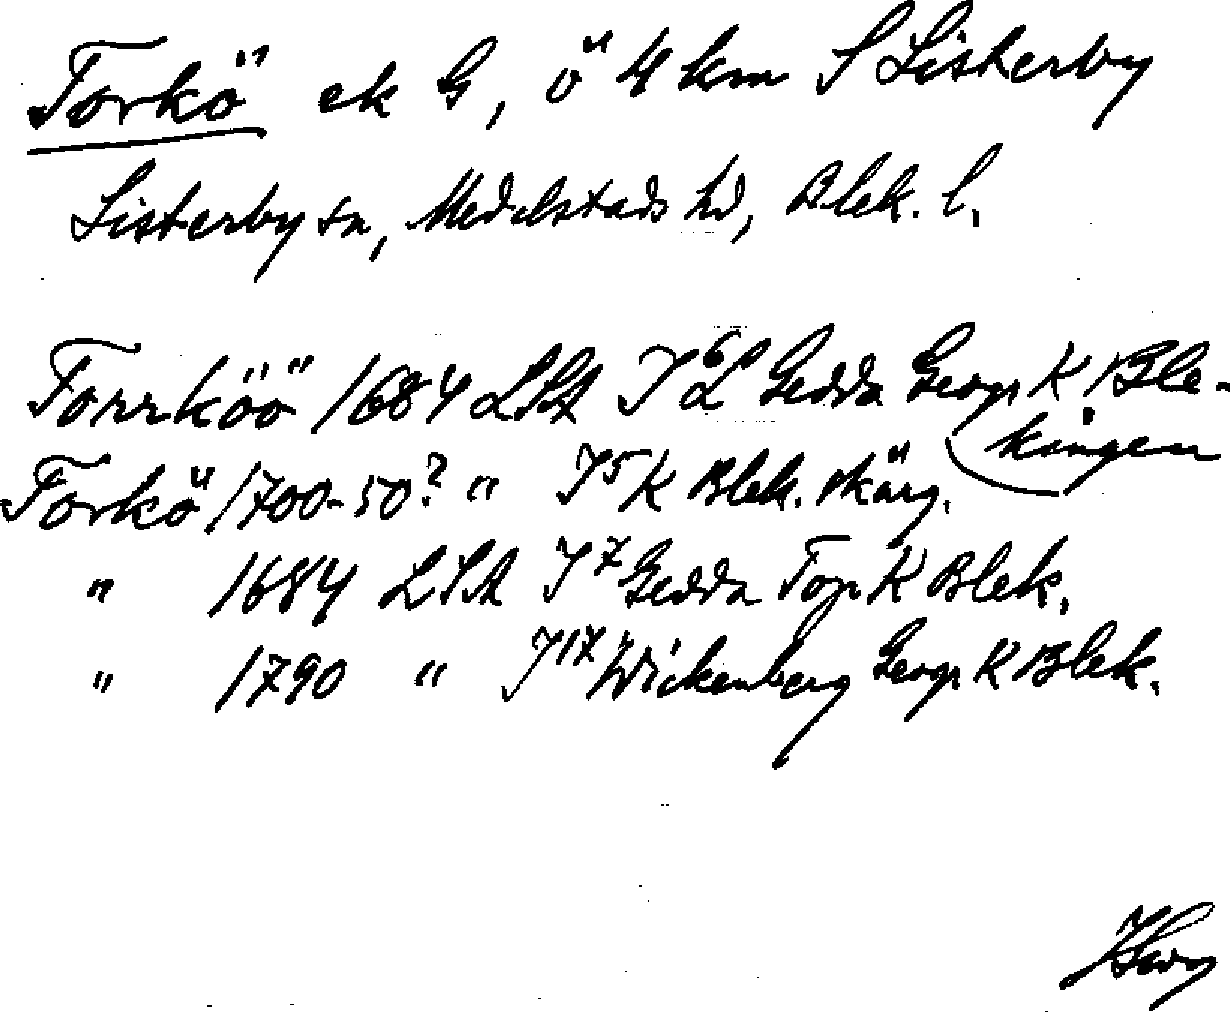 Torkö ek G, ö 4 km S Listerby
Listerby sn, Medelstads hd, Blek. l.
Torrköö 1684 LSA I 6 Gedda Geogr K Ble-
kingen
Torkö 1700-50? " I 5 K Blek. skärg.
" 1684 LSA I 7 Gedda Top K Blek.
" 1790 " I 17 Wickenberg Geogr K Blek.